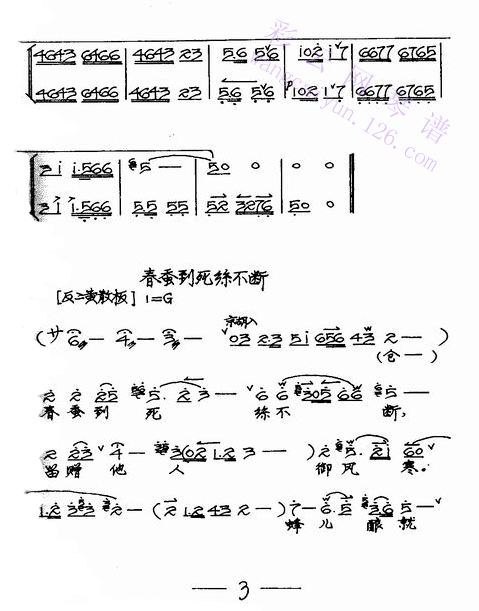 4643 6466 | 4643 23 | 5.6 56 | i02 i7 | 6677 6765
4643 6466 | 4643 23 | 5.6 56 | i02 i7 | 6677 6765
3i i.566 | 5 — | 50 0 | 0 0
3i i.566 | 55 55 | 52 3276 | 50 0
春蚕到死练不断
[反二黄散板] 1=G
京胡入
(サ6 — 4 — 3 — 03 23 5i 656 43 2 — )
(仓 — )
2 2 25 5. 2 3 — 6 6 305 66 5 —
春 蚕 到 死 练 不 断,
2 23 4 — 302 1.2 3 — ) 2 5. 2i 60
留赠 他 人 御 风 寒。
1.2 33 2 — (2 1.2 43 2 — ) 7 — 6.5 3.6 5 —
蜂 儿 酿 就
— 3 —
彩云网琴谱
.126.com